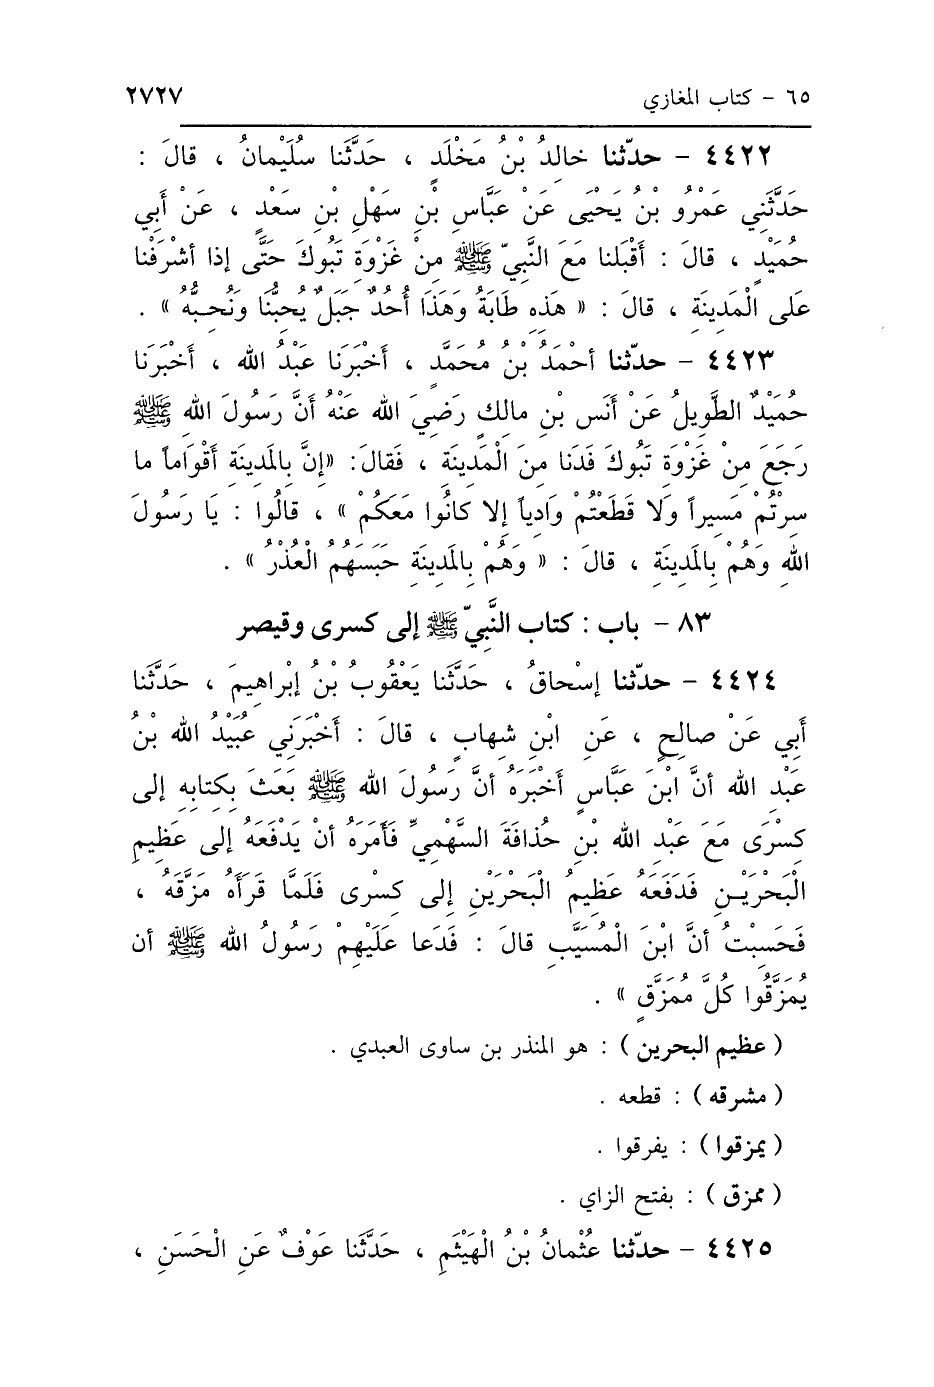 ٦٥ - كتاب المغازي ٢٧٢٧
٤٤٢٢ - حدّثنا خالدُ بْنُ مَخْلَدٍ ، حَدَّثَنا سُلَيْمانُ ، قالَ :
حَدَّثَنِي عَمْرُو بْنُ يَحْيَى عَنْ عَبَّاسِ بْنِ سَهْلِ بْنِ سَعْدٍ ، عَنْ أَبِي
حُمَيْدٍ ، قالَ : أَقْبَلنا مَعَ النَّبِيّ ﷺ مِنْ غَزْوَةِ تَبُوكَ حَتَّى إذا أشْرَفْنا
عَلى الْمَدِينَةِ ، قالَ : « هَذِهِ طَابَةُ وَهَذَا أُحُدٌ جَبَلٌ يُحِبُّنَا وَنُحِبُّهُ » .
٤٤٢٣ - حدّثنا أحْمَدُ بْنُ مُحَمَّدٍ ، أخْبَرَنَا عَبْدُ الله ، أخْبَرَنَا
حُمَيْدٌ الطَّوِيلُ عَنْ أَنَسِ بْنِ مالِكٍ رَضِيَ الله عَنْهُ أنَّ رَسُولَ الله ﷺ
رَجَعَ مِنْ غَزْوَةِ تَبُوكَ فَدَنَا مِنَ الْمَدِينَةِ ، فَقالَ: «إنَّ بِالمَدِينَةِ أقْوَاماً ما
سِرْتُمْ مَسِيراً وَلا قَطَعْتُمْ وَادِياً إلا كانُوا مَعَكُمْ » ، قالُوا : يَا رَسُولَ
اللهِ وَهُمْ بِالمَدِينَةِ ، قالَ : « وَهُمْ بِالمَدِينَةِ حَبَسَهُمُ الْعُذْرُ » .
٨٣ - باب : كتاب النَّبيّ ﷺ إلى كسرى وقيصر
٤٤٢٤ - حدّثنا إسْحاقُ ، حَدَّثَنا يَعْقُوبُ بْنُ إبْراهِيمَ ، حَدَّثَنا
أَبِي عَنْ صالِحٍ ، عَنِ ابْنِ شهابٍ ، قالَ : أخْبَرَنِي عُبَيْدُ الله بْنُ
عَبْدِ الله أنَّ ابْنَ عَبَّاسٍ أخْبَرَهُ أنَّ رَسُولَ الله ﷺ بَعَثَ بِكِتابِهِ إلى
كِسْرَى مَعَ عَبْدِ الله بْنِ حُذافَةَ السَّهْمِيِّ فَأَمَرَهُ أنْ يَدْفَعَهُ إلى عَظِيمِ
الْبَحْرَيْنِ فَدَفَعَهُ عَظِيمُ الْبَحْرَيْنِ إلى كِسْرى فَلَمَّا قَرَأَهُ مَزَّقَهُ ،
فَحَسِبْتُ أنَّ ابْنَ الْمُسَيَّبِ قالَ : فَدَعا عَلَيْهِمْ رَسُولُ الله ﷺ أن
يُمَزَّقُوا كُلَّ مُمَزَّقٍ » .
( عظيم البحرين ) : هو المنذر بن ساوى العبدي .
( مشرقه ) : قطعه .
( يمزقوا ) : يفرقوا .
( ممزق ) : بفتح الزاي .
٤٤٢٥ - حدّثنا عُثْمانُ بْنُ الْهَيْثَمِ ، حَدَّثَنا عَوْفٌ عَنِ الْحَسَنِ ،